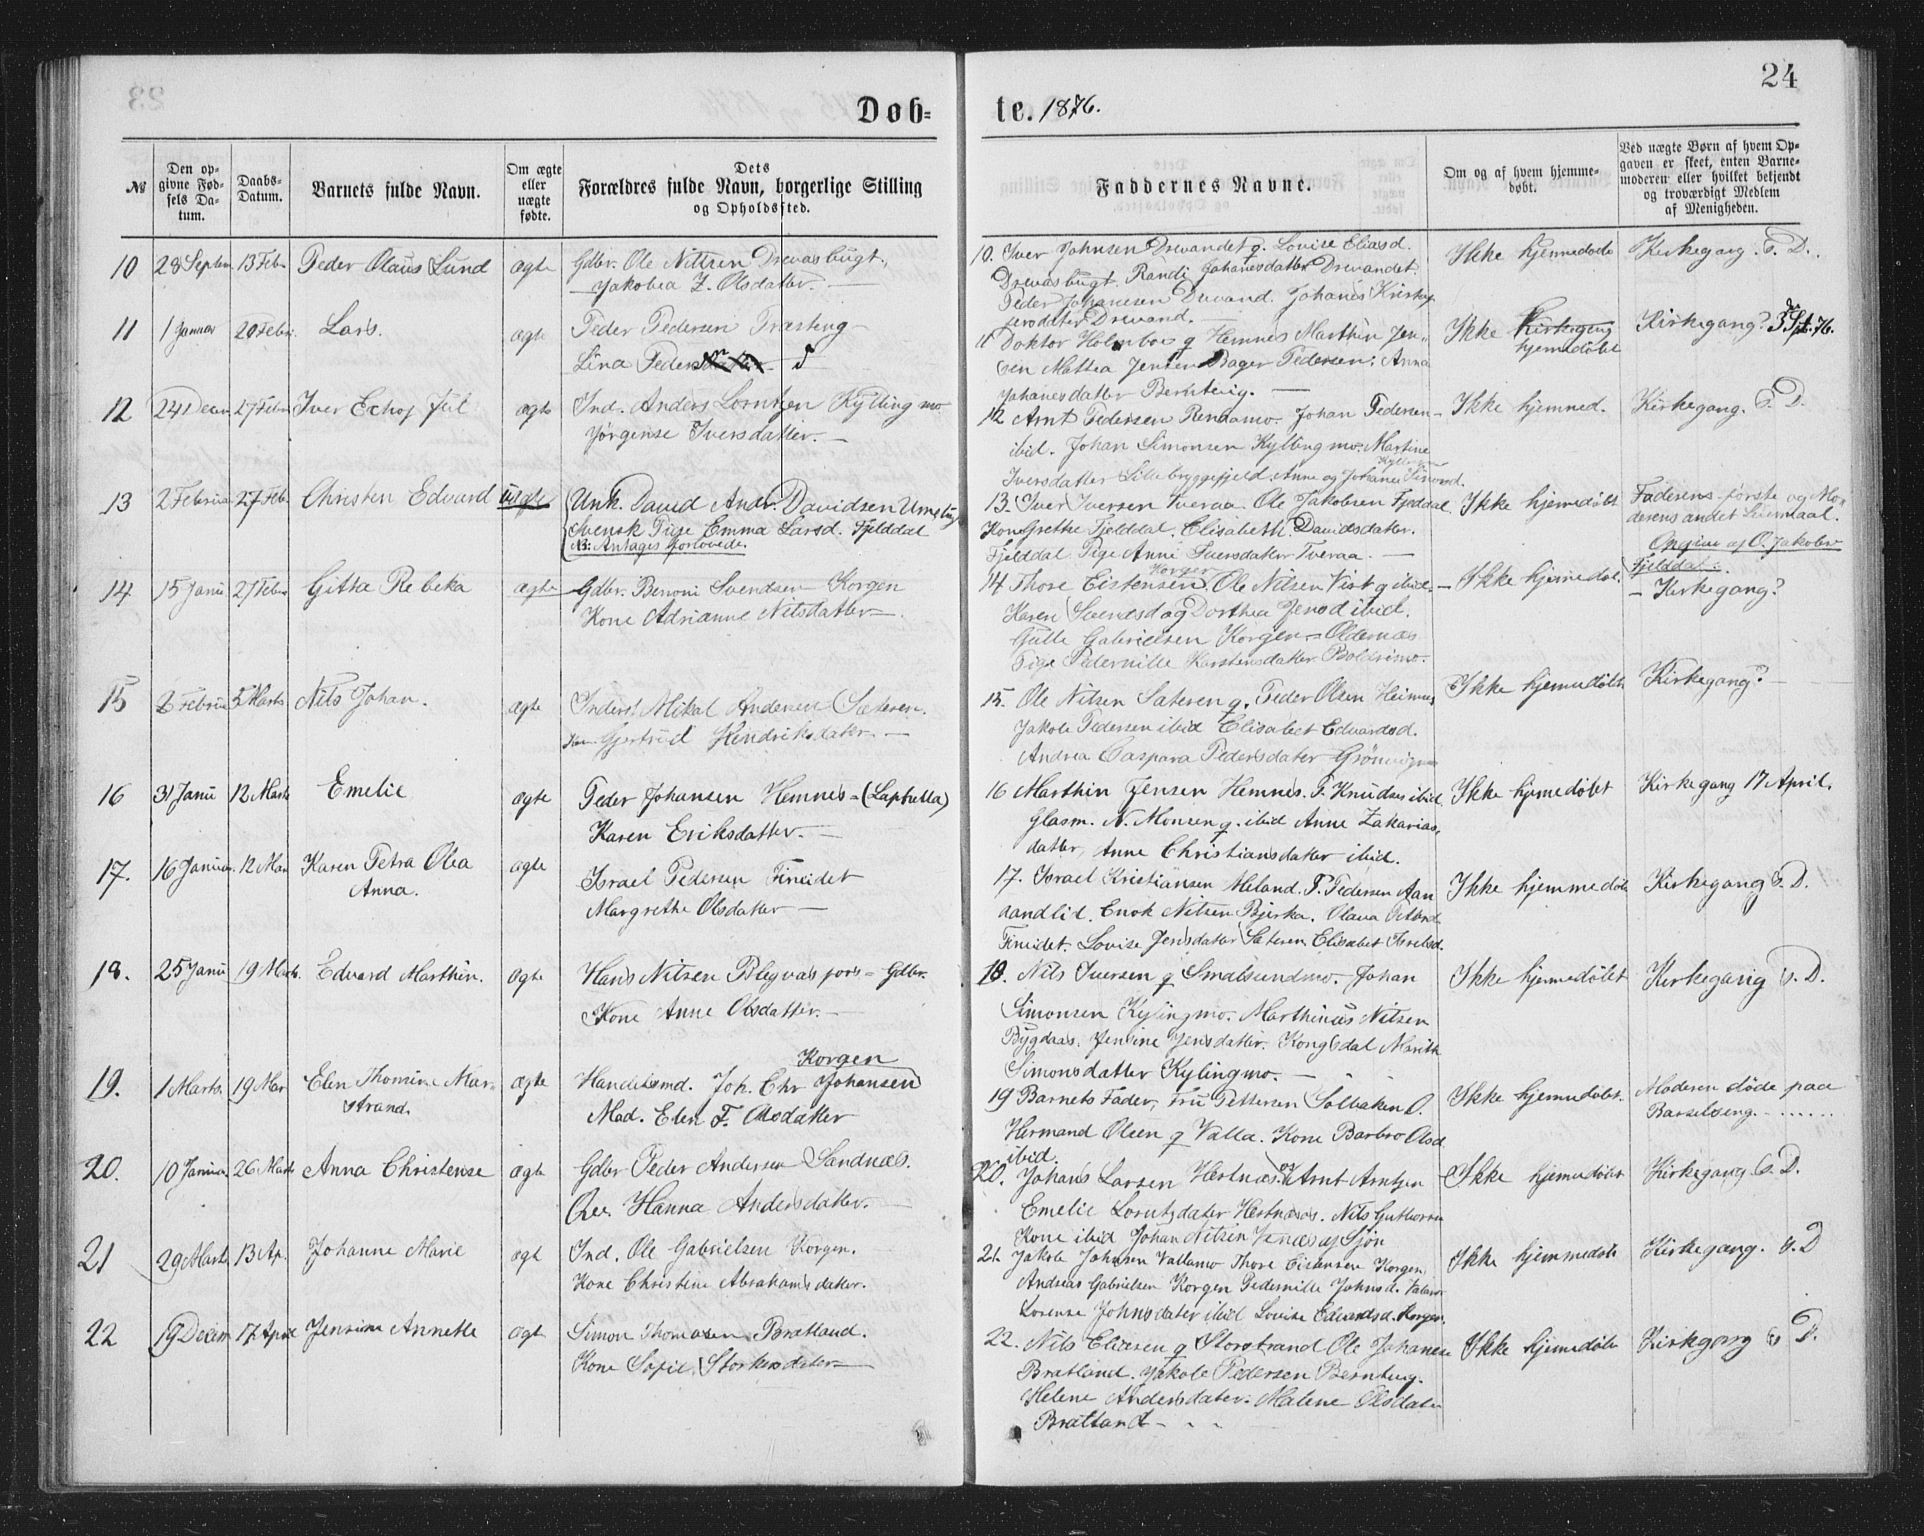 24
Døb=
te. 1876.
№
Den op-
givne Fød-
sels Da-
tum.
Daabs-
Datum.
Barnets fulde Navn.
Om ægte
eller
uægte
fødte.
Dets
Forældres fulde Navn, borgerlige Stilling
og Opholdssted.
Faddernes Navne.
Om og af hvem hjemme-
døbt.
Ved uægte Børn af hvem Op-
gaven er skeet, enten Barne-
moderen eller hvilket bekjendt
og troværdigt Medlem
af Menigheden.
10 28 Septem 13 Feb. Peder Olaus Lund ægte Gdbr. Ole Nilsen Drevasbugt.
Jakobea Z. Olsdatter.
10. Iver Johnsen Drevandet g. Lovise Eliasd.
Drevasbugt. Randi Johanesdatter Drevandet
Peder Johannesen Drevand. Johanes Kristof
Drevand.
Ikke hjemmedøbt Kirkegang. s. D.
11 1 Januar 20 Febr. Lars. ægte Peder Pedersen
Lina Peders
11 Doktor Holmboe g Hemnes Marthin Jen-
sen Mattea Jensen Bager Pedersen. Anna
Johanesdatter
Ikke Kirkegang
hjemmedøbt
Kirkegang? 3 Spt. 76.
12 24 Decm 27 Febr Iver Johan Juel ægte Ind. Anders Lorntsen Kyllingmo
Jørgense Iversdatter.
12 Arnt Pedersen Rendamo. Johan Pedersen
ibid. Johan Simonsen Kyllingmo. Martine
Iversdatter Anne og Johanes Simonsd.
Ikke hjemmed. Kirkegang. s. D.
13 2 Februar 27 Feb. Christen Edvard uægte Unk. David Andr. Davidsen
Svensk Pige Emma Larsd. Fjelddal
NB: Antages forlovede.
13. Iver Iversen Tveraa. Ole Jakobsen Fjelddal
Kone Grethe Fjelddal. Elisabeth Davidsdatter.
Fjelddal Pige Anne Iversdatter Tveraa.
Ikke hjemmedøbt
Faderens første og Mo-
derens andet Leiermaal.
Opgive af O. Jakobsen
Fjelddal.
14 15 Janu 27 Febr Gitta Rebeka ægte Gdbr. Benoni Svendsen Korgen
Kone Adrianne Nilsdatter
14 Thore Eistensen Korgen. Ole Nilsen Vist g ibid.
Karen Svendsd og Dorthea Jensd ibid.
Gulle Gabrielsen Korgen - Oldernæs
Pige Pedernille Karstensdatter
Ikke hjemmedøbt - Kirkegang?
15 Februa 5 Marts Nils Johan. ægte Inderst Mikal Andersen Sæteren.
Kone Gjertrud Hendriksdatter.
15. Ole Nilsen Sæteren g. Peder Olsen
Jakob Pedersen ibid Elisabet Edvardsd.
Andrea Caspara Pedersdatter
Ikke hjemmedøbt Kirkegang?
16 31 Janu 12 Marts Emelie ægte Peder Johansen Hemnes - (Laphella)
Karen Eriksdatter.
16 Marthin Jensen Hemnes. P. Knudsen ibid
Glasm. N. Monsen g. ibid Anne Zakarias-
datter, Anne Christiansdatter ibid.
Ikke hjemmedøbt Kirkegang 17 April.
17. 16 Januar 12 Mar Karen Petra Olea
Anna. ægte Israel Pedersen Fineidet
Margrethe Olsdatter
17. Israel Kristiansen Meland. P. Pedersen
Enok Nilsen Bjerka. Olava
Fineidet. Lovise Jensdatter Sæteren Elisabet
Ikke hjemmedøbt Kirkegang s. D.
18. 25 Janu 19 Marts. Edvard Marthin. ægte Hans Nilsen - Gdbr.
Kone Anne Olsdatter.
18. Nils Iversen g Smalsundmo. Johan
Simonsen Kylingmo. Marthinus Nilsen
Bygdaas. Jensine Jensdatter. Kongsdal Marith
Simonsdatter Kylingmo.
Ikke hjemmedøbt Kirkegang s. D.
19. 1 Marts. 19 Mar Elen Thomine Mar-
strand. ægte Handelsmd. Joh. Chr Johansen Korgen
Mad. Elen F. Olsdatter
19 Barnets Fader, Fru Pettersen Solbaken O.
Hermand Olsen g Valla. Kone Barbro Olsd
ibid.
Ikke hjemmedøbt. Moderen døde paa
Barselseng.
20. 10 Januar 26 Marts Anna Christense ægte Gdbr Peder Andersen Sandnæs.
Hanna Andersdatter.
20. Johans Larsen Hestnæs. og Arnt Arntsen
Emelie Lorntsdatter Hestnæs. Nils Guthorm
Kone ibid Johan Nilsen
Ikke hjemmedøbt Kirkegang s. D.
21 29 Marts 13 Ap. Johanne Marie ægt Ind. Ole Gabrielsen Korgen.
Kone Christine Abrahamsdatter.
21. Jakob Johnsen Vallamo Thore Eistensen Korgen,
Andreas Gabrielsen Korgen Pedernille Johnsd.
Lorense Johnsdatter ibid Lovise Edvardsd. Korgen.
Ikke hjemmedøbt Kirkegang. s. D
22 19 Decem 17 April Jensine Annette ægt Simon Thomasen Bratland.
Kone Sofie Storkersdatter
22. Nils Eliasen g Storstrand Ole Johansen
Bratland. Jakob Pedersen
Helene Andersdatter. Malene Olsdatter
Bratland
Ikke hjemmedøbt Kirkegang s D.